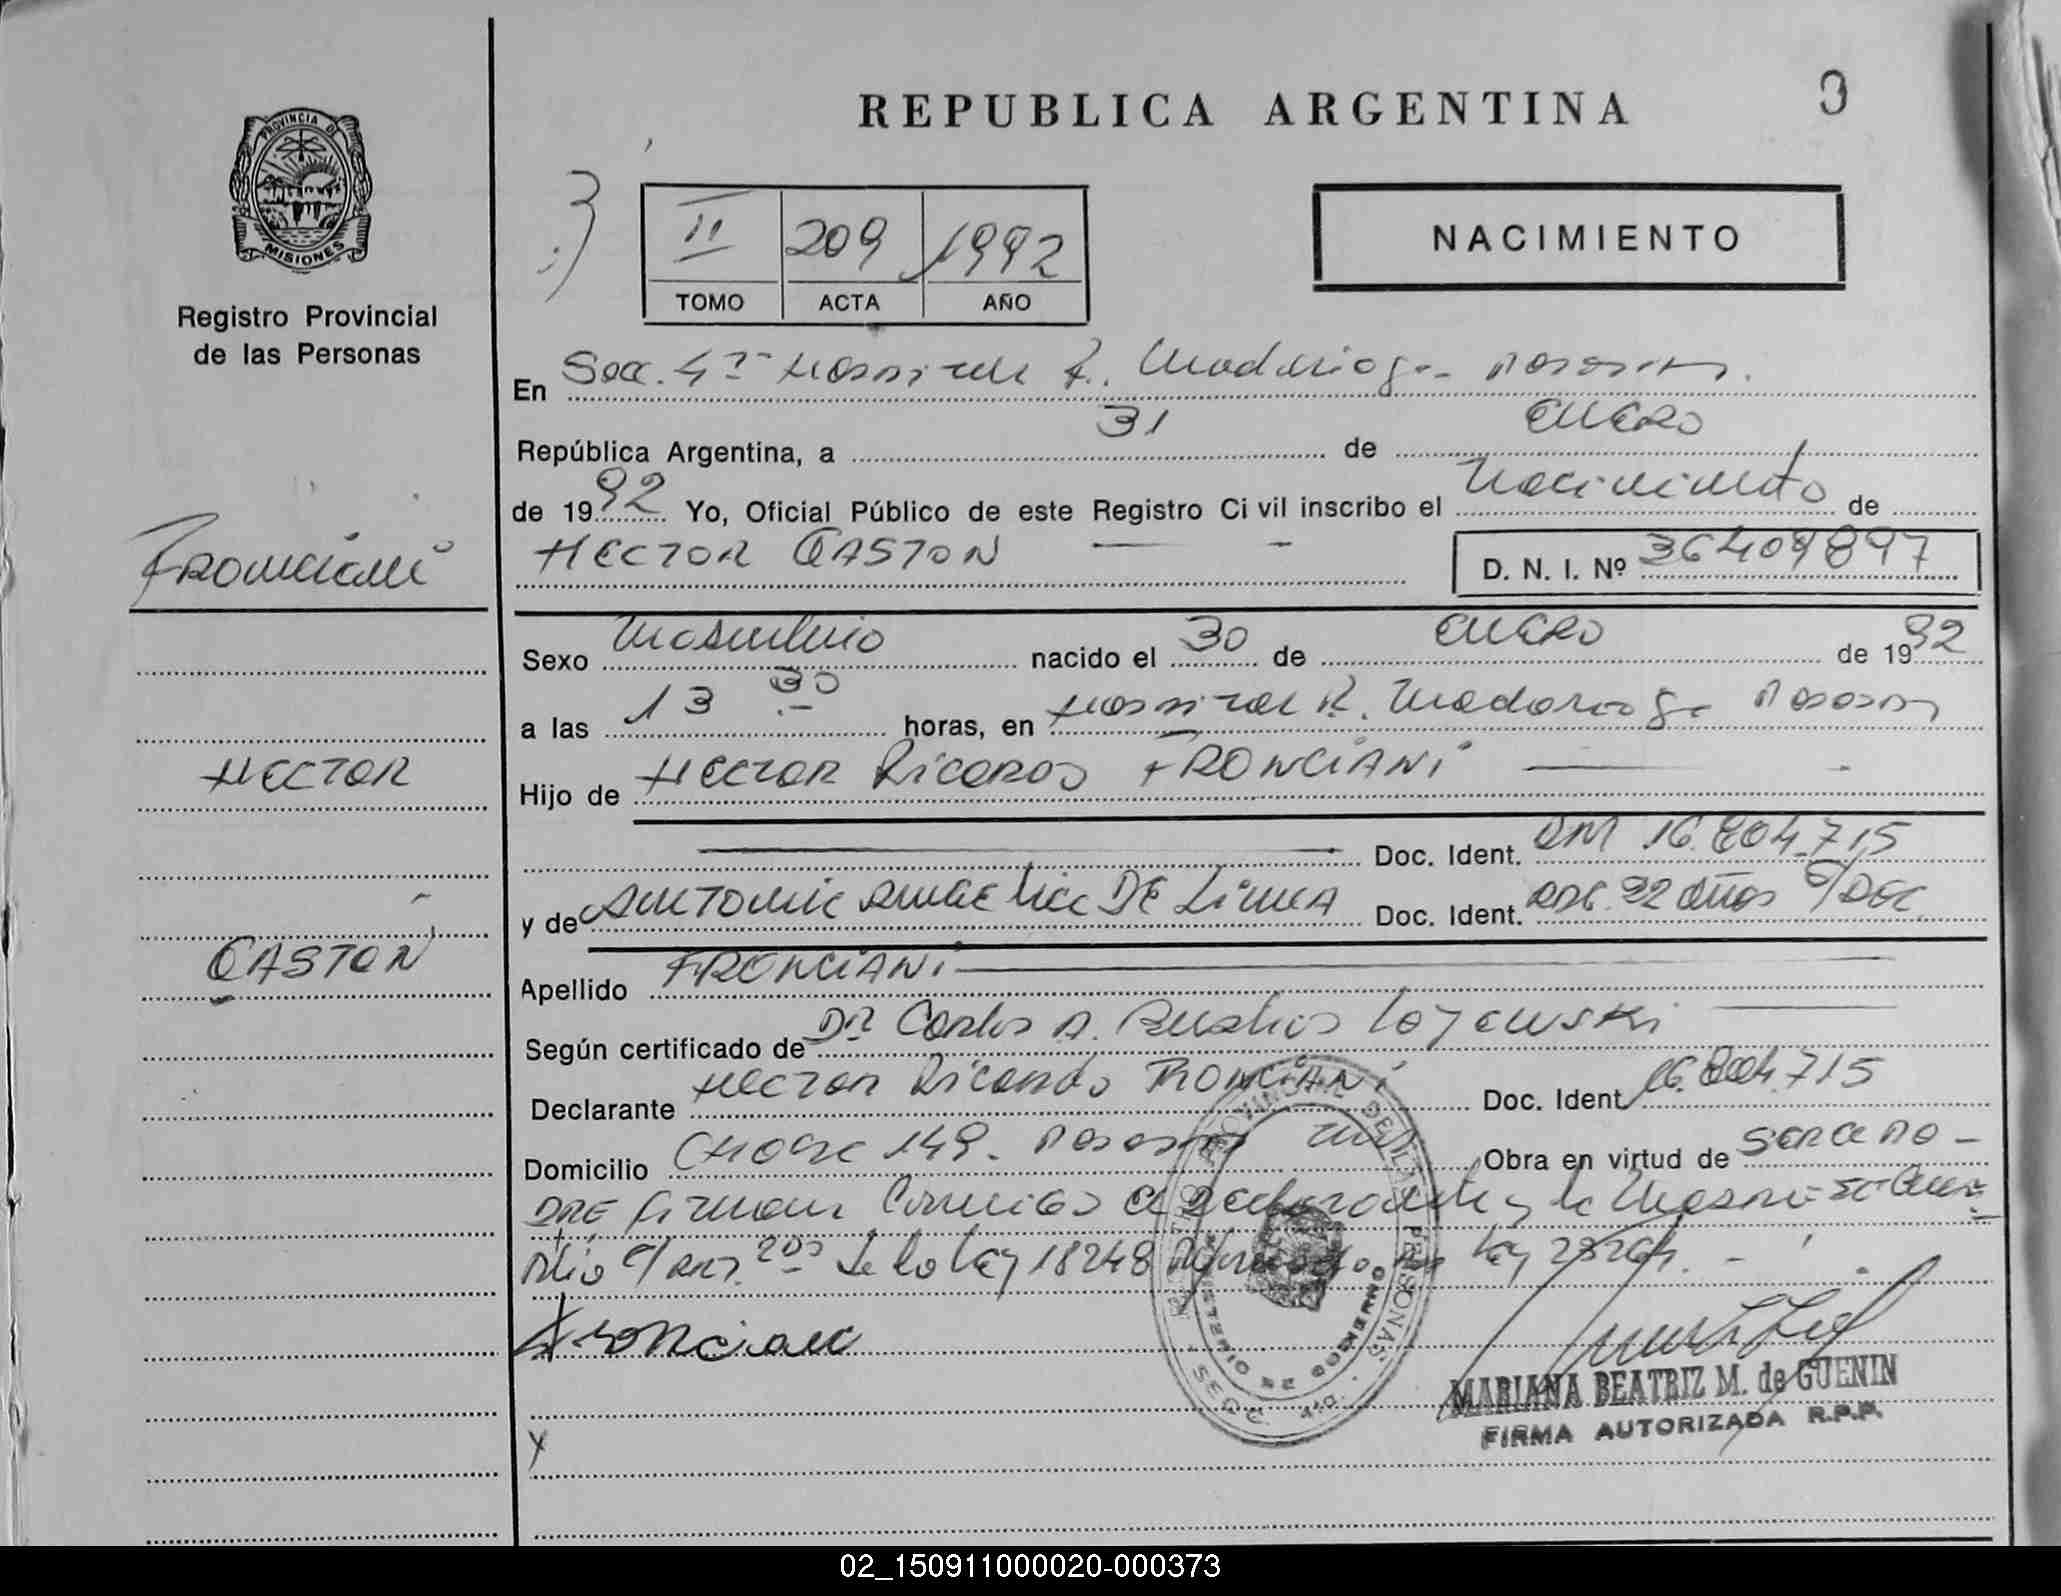 REPUBLICA ARGENTINA
3
PROVINCIA DE
MISIONES
Registro Provincial
de las Personas
II 209 1992
TOMO ACTA AÑO
NACIMIENTO
En Secc. 4ta Hospital R. Madariaga Posadas.
República Argentina, a 31 de Enero
de 1992 Yo, Oficial Público de este Registro Civil inscribo el Nacimiento de
HECTOR GASTON D. N. I. Nº 36409897
Fronciani
HECTOR
GASTON
Sexo Masculino nacido el 30 de ENERO de 1992
a las 13 30 horas, en Hospital R. Madariaga Posadas
Hijo de HECTOR Ricardo FRONCIANI
Doc. Ident. DNI 16.804.715
y de Antonia Angelica DE LIMA Doc. Ident. 22 años s/Doc.
Apellido FRONCIANI
Según certificado de DR Carlos A. Loyewski
Declarante Hector Ricardo FRONCIANI Doc. Ident. 16.804.715
Domicilio 149. Posadas Obra en virtud de SER EL PA-
DRE firman Conmigo el Declarante y la Madre
de la Ley 18248 Ley
Fronciani
REGISTRO PROVINCIAL DE LAS PERSONAS
MINISTERIO DE GOBIERNO
MARIANA BEATRIZ M. de GUENIN
FIRMA AUTORIZADA R.P.P.
02_150911000020-000373